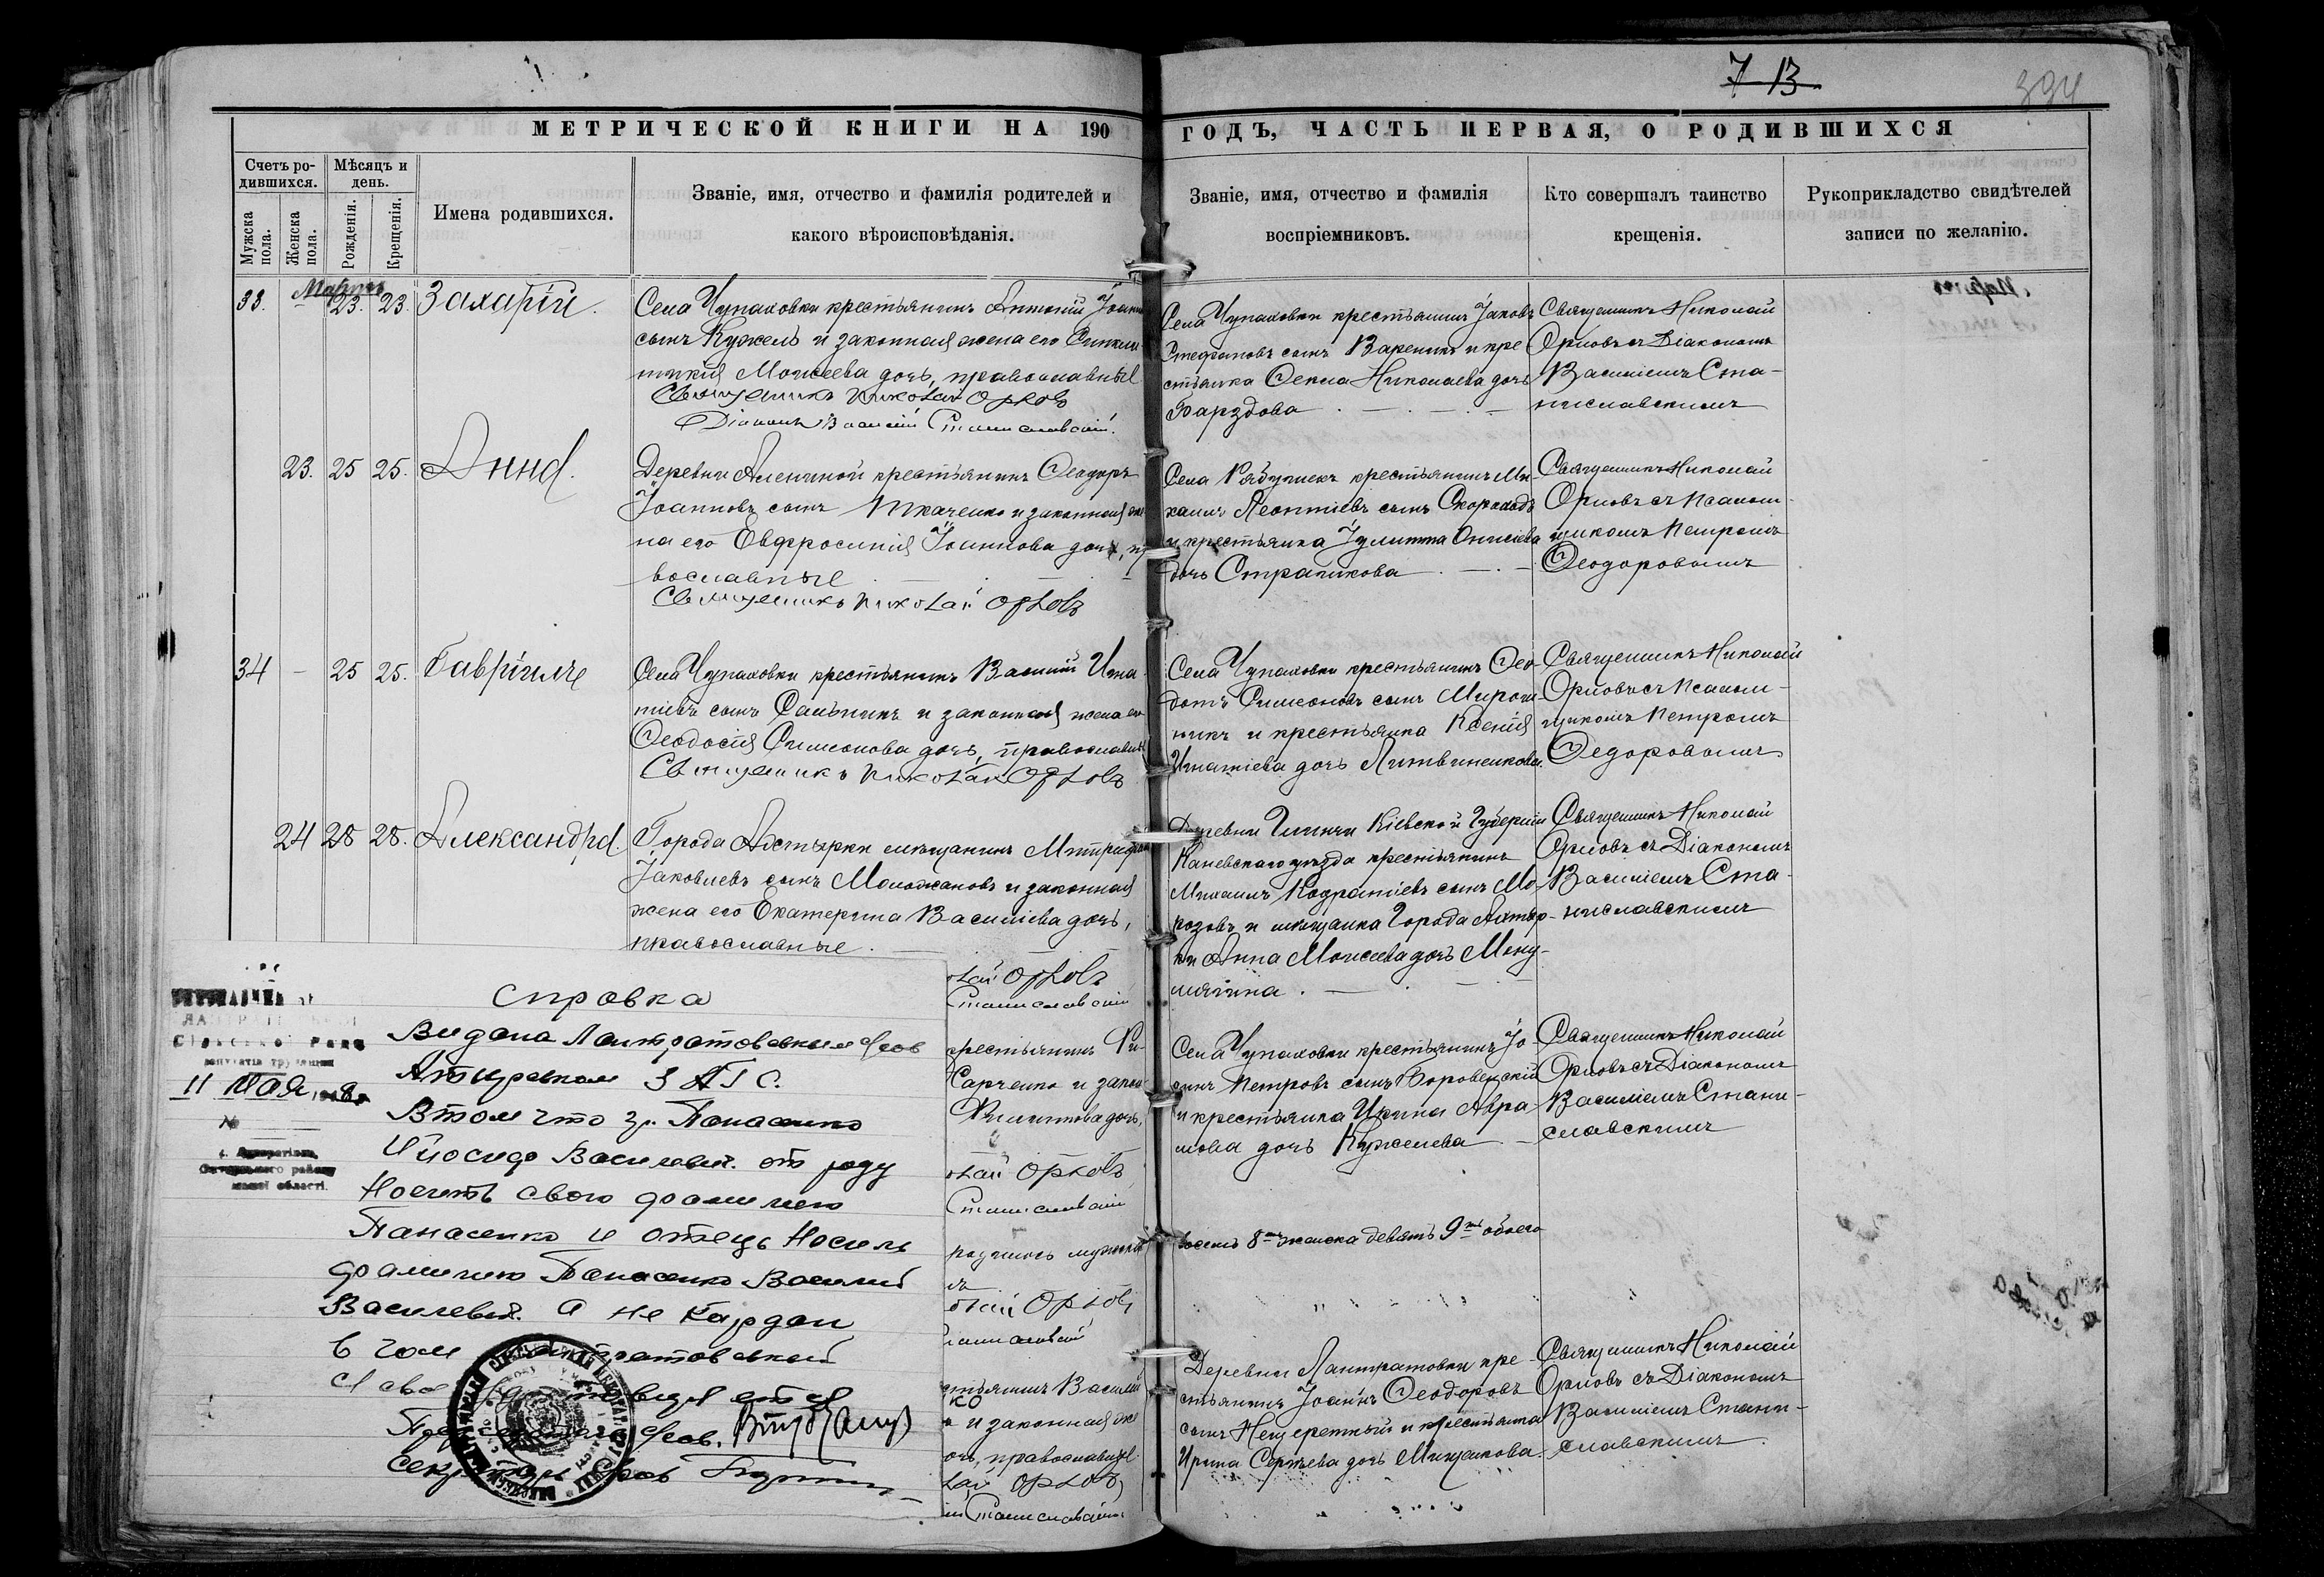 7 13
394
МЕТРИЧЕСКОЙ КНИГИ НА 190
ГОДЪ, ЧАСТЬ ПЕРВАЯ, О РОДИВШИХСЯ
Счетъ ро-
дившихся.
Мѣсяцъ и
день.
Мужска
пола.
Женска
пола.
Рожденія.
Крещенія.
Имена родившихся.
Званіе, имя, отчество и фамилія родителей и
какого вѣроисповѣданія.
Званіе, имя, отчество и фамилія
воспріемниковъ.
Кто совершалъ таинство
крещенія.
Рукоприкладство свидѣтелей
записи по желанію.
Мартъ
33. 23. 23. Захарій.
Села Чупаховки крестьянинъ Антоній Іоанн
сынъ Кужель и законная жена его Синкли
тикія Моисеева дочь, православные
Священникъ Николай Орловъ
Діаконъ Василій Станиславскій.
Села Чупаховки крестьянинъ Іаковъ
Стефановъ сынъ Вареникъ и кре
стьянка Ѳекла Николаева дочь
Священникъ Николай
Орловъ съ Діакономъ
Василіемъ Ста-
ниславскимъ
23. 25 25. Анна.
Деревни Алешиной крестьянинъ Ѳеодоръ
Іоанновъ сынъ Ткаченко и законная же
на его Евфросинія Іоаннова дочь, пра
вославные
Священникъ Николай Орловъ
Села Рябушекъ крестьянинъ Ми-
хаилъ Леонтіевъ сынъ Скороходъ
и крестьянка Іулитта Онисіева
дочь Страшкова
Священникъ Николай
Орловъ съ Псалом-
щикомъ Петромъ
Ѳеодоровымъ
34 - 25 25. Гавріилъ
Села Чупаховки крестьянинъ Василій Игна-
тіевъ сынъ Сальникъ и законная жена его
Ѳеодосія Симеонова дочь, православные
Священникъ Николай Орловъ
Села Чупаховки крестьянинъ Ѳео-
дотъ Симеоновъ сынъ Мирош-
никъ и крестьянка Ксенія
Игнатіева дочь Литвиненкова.
Священникъ Николай
Орловъ съ Псалом-
щикомъ Петромъ
Ѳедоровымъ
24 28 28. Александра.
Города Ахтырки мѣщанинъ Митрофан
Іаковлевъ сынъ Моложановъ и законная
жена его Екатерина Василіева дочь,
православные.
Деревни Глинчи Кіевской Губерніи
Каневскаго уѣзда крестьянинъ
Михаилъ Кодратіевъ сынъ Мо-
розовъ и мѣщанка Города Ахтыр-
ки Анна Моисеева дочь
Священникъ Николай
Орловъ съ Діакономъ
Василіемъ Ста-
ниславскимъ
олай Орловъ
Станиславскій
крестьянинъ
Сарченко и закон
Филиппова дочь,
олай Орловъ
Станиславскій
Села Чупаховки крестьянинъ Іо-
Петровъ сынъ Боровенскій
и крестьянка Ирина Авра
мова дочь Кужелева
Священникъ Николай
Орловъ съ Діакономъ
Василіемъ Стани-
славскимъ
родилось мужска
восемь 8 женска девять 9 обоего
олай Орловъ
стьянинъ Василій
ко
и законная же
очь, православные
лай Орловъ
Станиславскій
Деревни Лантратовки кре-
стьянинъ Іоаннъ Ѳеодоровъ
сынъ Нещеретный и крестьянка
Ирина Сергѣева дочь Мищенкова.
Священникъ Николай
Орловъ съ Діакономъ
Василіемъ Стани-
славскимъ.
11 мая
№
Справка
Видана Лантратовским с/сов
Ахтирском ЗАГС.
В том что гр. Панасенко
Иосиф Василевич. от роду
Носить свою фамилию
Панасенко и отець Носиль
фамилию Панасенко Василий
Василевич. а не Кардаш
в чом Лантратовский
Секретарь с/сов